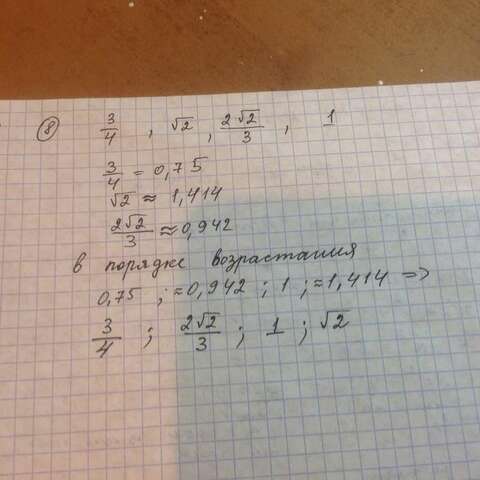 ⑧ 3/4 , √2 , 2√2/3 , 1
3/4 = 0,75
√2 ≈ 1,414
2√2/3 ≈ 0,942
в порядке возрастания
0,75 ; ≈0,942 ; 1 ; ≈1,414 =>
3/4 ; 2√2/3 ; 1 ; √2